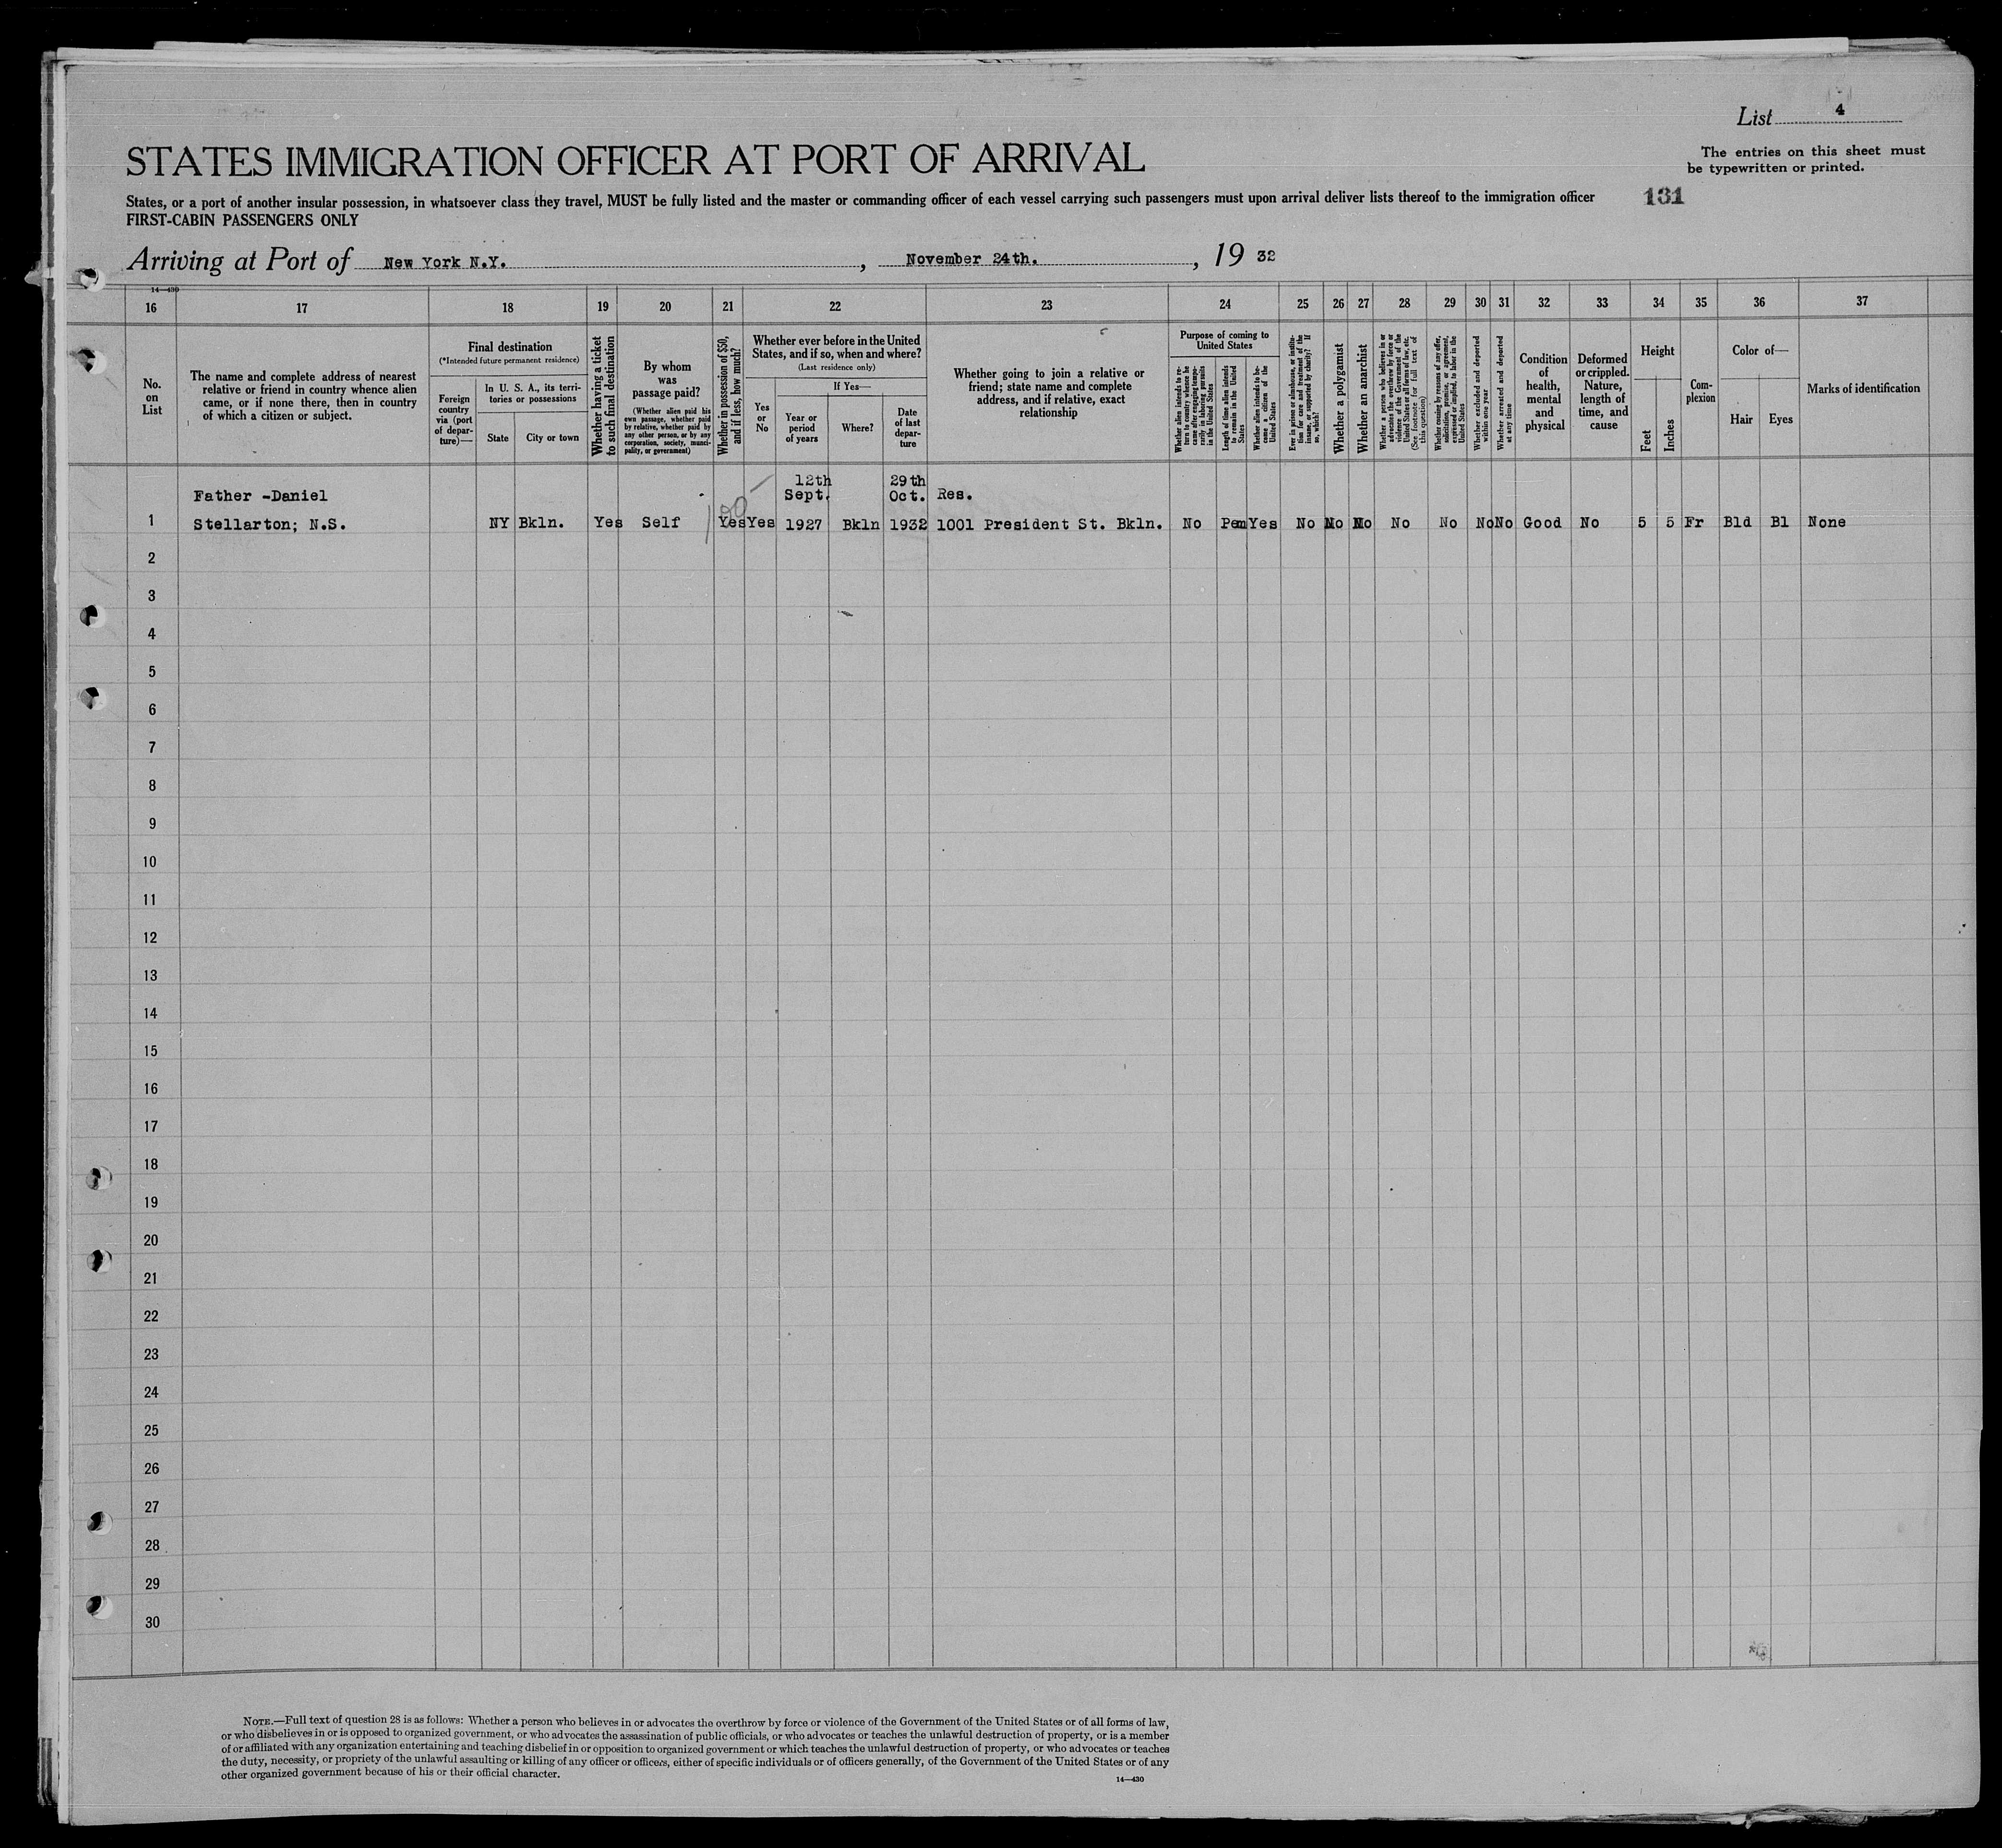 List 4
STATES IMMIGRATION OFFICER AT PORT OF ARRIVAL
The entries on this sheet must
be typewritten or printed.
States, or a port of another insular possession, in whatsoever class they travel, MUST be fully listed and the master or commanding officer of each vessel carrying such passengers must upon arrival deliver lists thereof to the immigration officer
131
FIRST-CABIN PASSENGERS ONLY
Arriving at Port of New York N.Y., November 24th., 19 32
14—430
16 17 18 19 20 21 22 23 24 25 26 27 28 29 30 31 32 33 34 35 36 37
No.
on
List
The name and complete address of nearest
relative or friend in country whence alien
came, or if none there, then in country
of which a citizen or subject.
Final destination
(*Intended future permanent residence)
Foreign
country
via (port
of depar-
ture)—
In U. S. A., its terri-
tories or possessions
State
City or town
Whether having a ticket
to such final destination
By whom
was
passage paid?
(Whether alien paid his
own passage, whether paid
by relative, whether paid by
any other person, or by any
corporation, society, munici-
pality, or government)
Whether in possession of $50,
and if less, how much?
Whether ever before in the United
States, and if so, when and where?
(Last residence only)
Yes
or
No
If Yes—
Year or
period
of years
Where?
Date
of last
depar-
ture
Whether going to join a relative or
friend; state name and complete
address, and if relative, exact
relationship
Purpose of coming to
United States
Whether alien intends to re-
turn to country whence he
came after engaging tempo-
rarily in laboring pursuits
in the United States
Length of time alien intends
to remain in the United
States
Whether alien intends to be-
come a citizen of the
United States
Ever in prison or almshouse, or institu-
tion for care and treatment of the
insane, or supported by charity? If
so, which?
Whether a polygamist
Whether an anarchist
Whether a person who believes in or
advocates the overthrow by force or
violence of the Government of the
United States or all forms of law, etc.
(See footnote for full text of
this question)
Whether coming by reasons of any offer,
solicitation, promise, or agreement,
expressed or implied, to labor in the
United States
Whether excluded and deported
within one year
Whether arrested and deported
at any time
Condition
of
health,
mental
and
physical
Deformed
or crippled.
Nature,
length of
time, and
cause
Height
Feet
Inches
Com-
plexion
Color of—
Hair
Eyes
Marks of identification
12th 29th
Father -Daniel Sept. Oct. Res.
100
1 Stellarton; N.S. NY Bkln. Yes Self Yes Yes 1927 Bkln 1932 1001 President St. Bkln. No Pem Yes No No No No No No No Good No 5 5 Fr Bld Bl None
2
3
4
5
6
7
8
9
10
11
12
13
14
15
16
17
18
19
20
21
22
23
24
25
26
27
28
29
30
NOTE.—Full text of question 28 is as follows: Whether a person who believes in or advocates the overthrow by force or violence of the Government of the United States or of all forms of law,
or who disbelieves in or is opposed to organized government, or who advocates the assassination of public officials, or who advocates or teaches the unlawful destruction of property, or is a member
of or affiliated with any organization entertaining and teaching disbelief in or opposition to organized government or which teaches the unlawful destruction of property, or who advocates or teaches
the duty, necessity, or propriety of the unlawful assaulting or killing of any officer or officers, either of specific individuals or of officers generally, of the Government of the United States or of any
other organized government because of his or their official character.
14—430